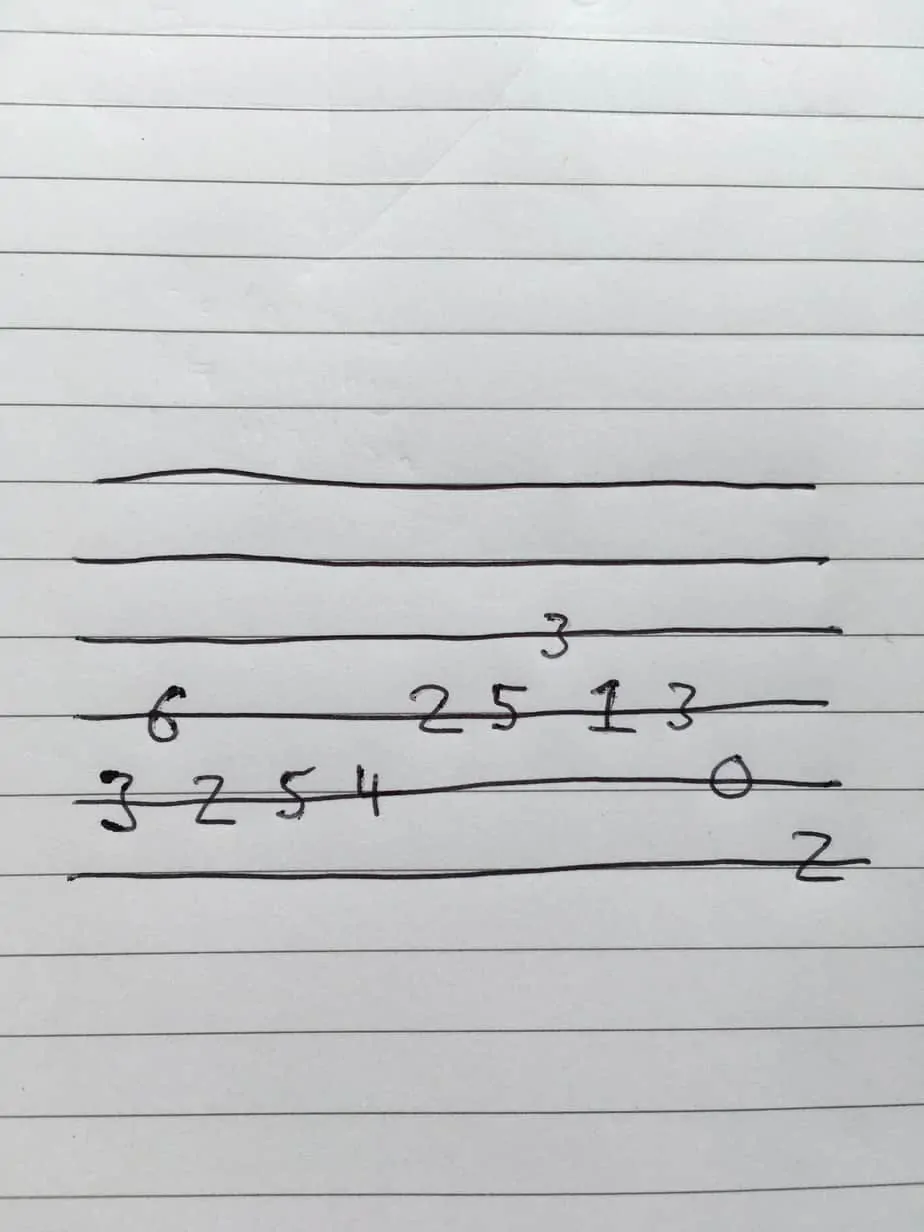 3
6 2 5 1 3
3 2 5 4 0
2